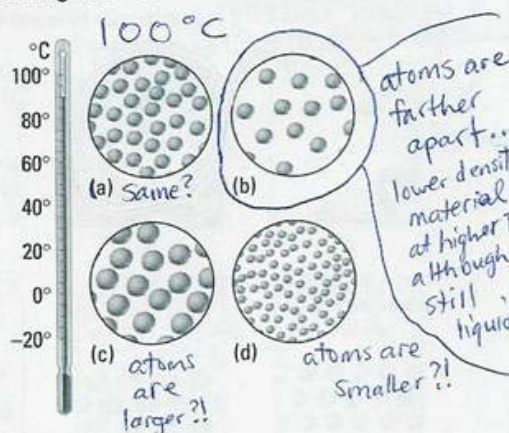 100°C
°C
100°
80°
60°
40°
20°
0°
-20°
(a) Same?
(b)
(c) atoms
are
larger?!
(d) atoms are
smaller?!
atoms are
farther
apart..
lower densit
material
at higher T
although
still
liquid